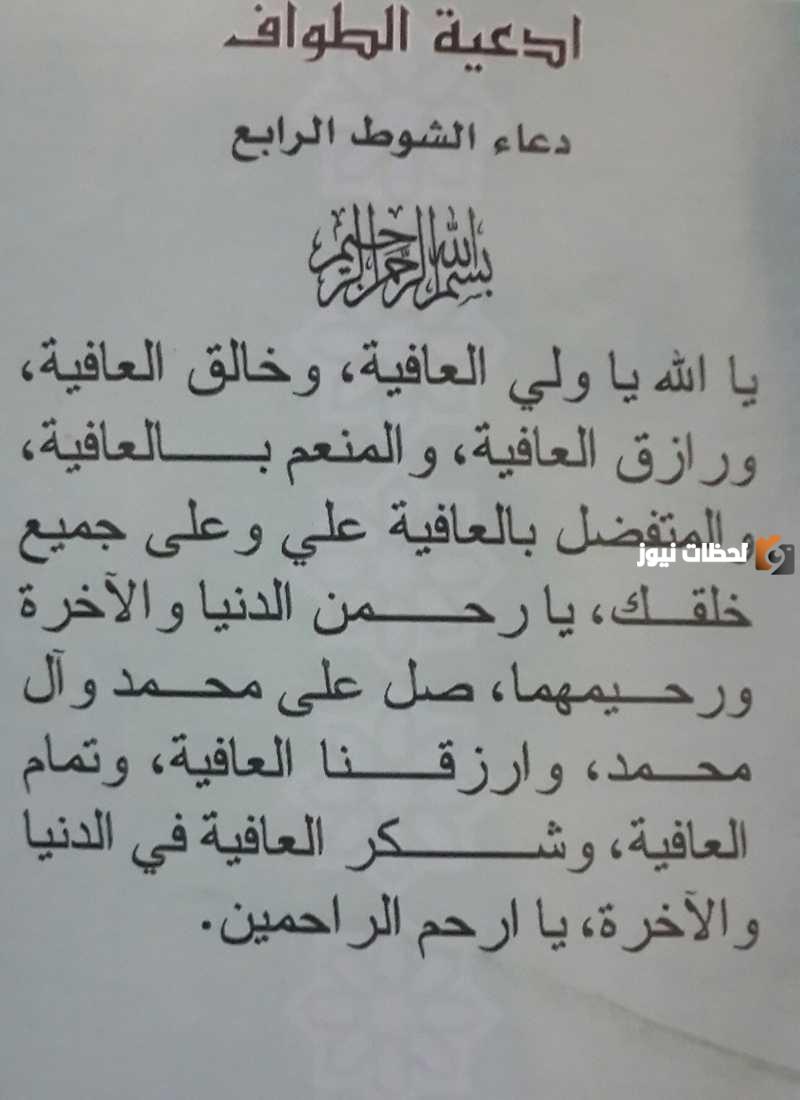 ادعية الطواف
دعاء الشوط الرابع
بسم الله الرحمن الرحيم
يا الله يا ولي العافية، وخالق العافية،
ورازق العافية، والمنعم بـــالعافية،
والمتفضل بالعافية علي وعلى جميع
لحظات نيوز
خلقـك، يا رحـــمن الدنيا والآخرة
ورحـيمهما، صل على محـمد وآل
محـمد، وارزقـــنا العافية، وتمام
العافية، وشـــــكر العافية في الدنيا
والآخرة، يا ارحم الراحمين.